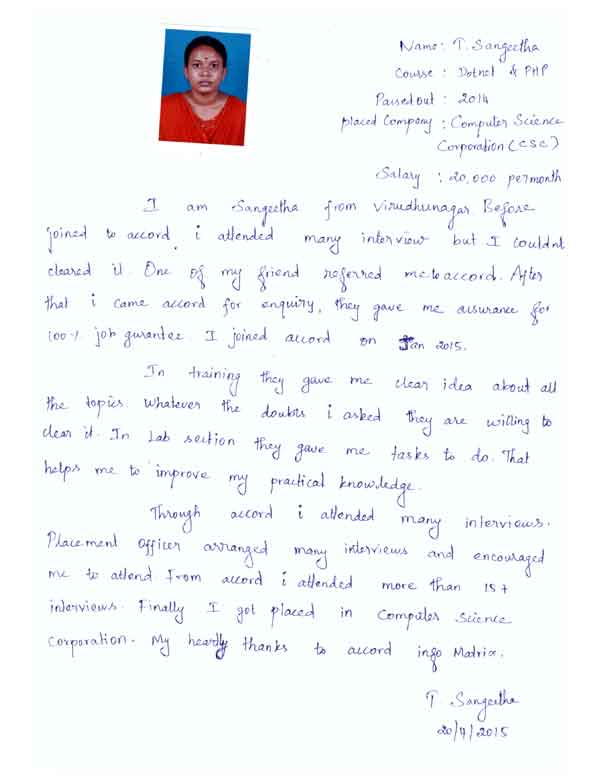 Name : T. Sangeetha
Course : Dotnet & PHP
Passedout : 2014
Placed Company : Computer Science
Corporation (CSC)
Salary : 20,000 per month
I am Sangeetha from Virudhunagar Before
joined to accord, i attended many interview but I couldnt
cleared it. One of my friend referred me to accord. After
that i came accord for enquiry, they gave me assurance for
100% job gurantee. I joined accord on Jan 2015.
In training they gave me clear idea about all
the topics. Whatever the doubts i asked they are willing to
clear it. In Lab section they gave me tasks to do. That
helps me to improve my practical knowledge.
Through accord i attended many interviews.
Placement Officer arranged many interviews and encouraged
me to attend. From accord i attended more than 15+
interviews. Finally I got placed in Computer Science
Corporation. My heartly thanks to accord info Matrix.
T. Sangeetha
20/7/2015